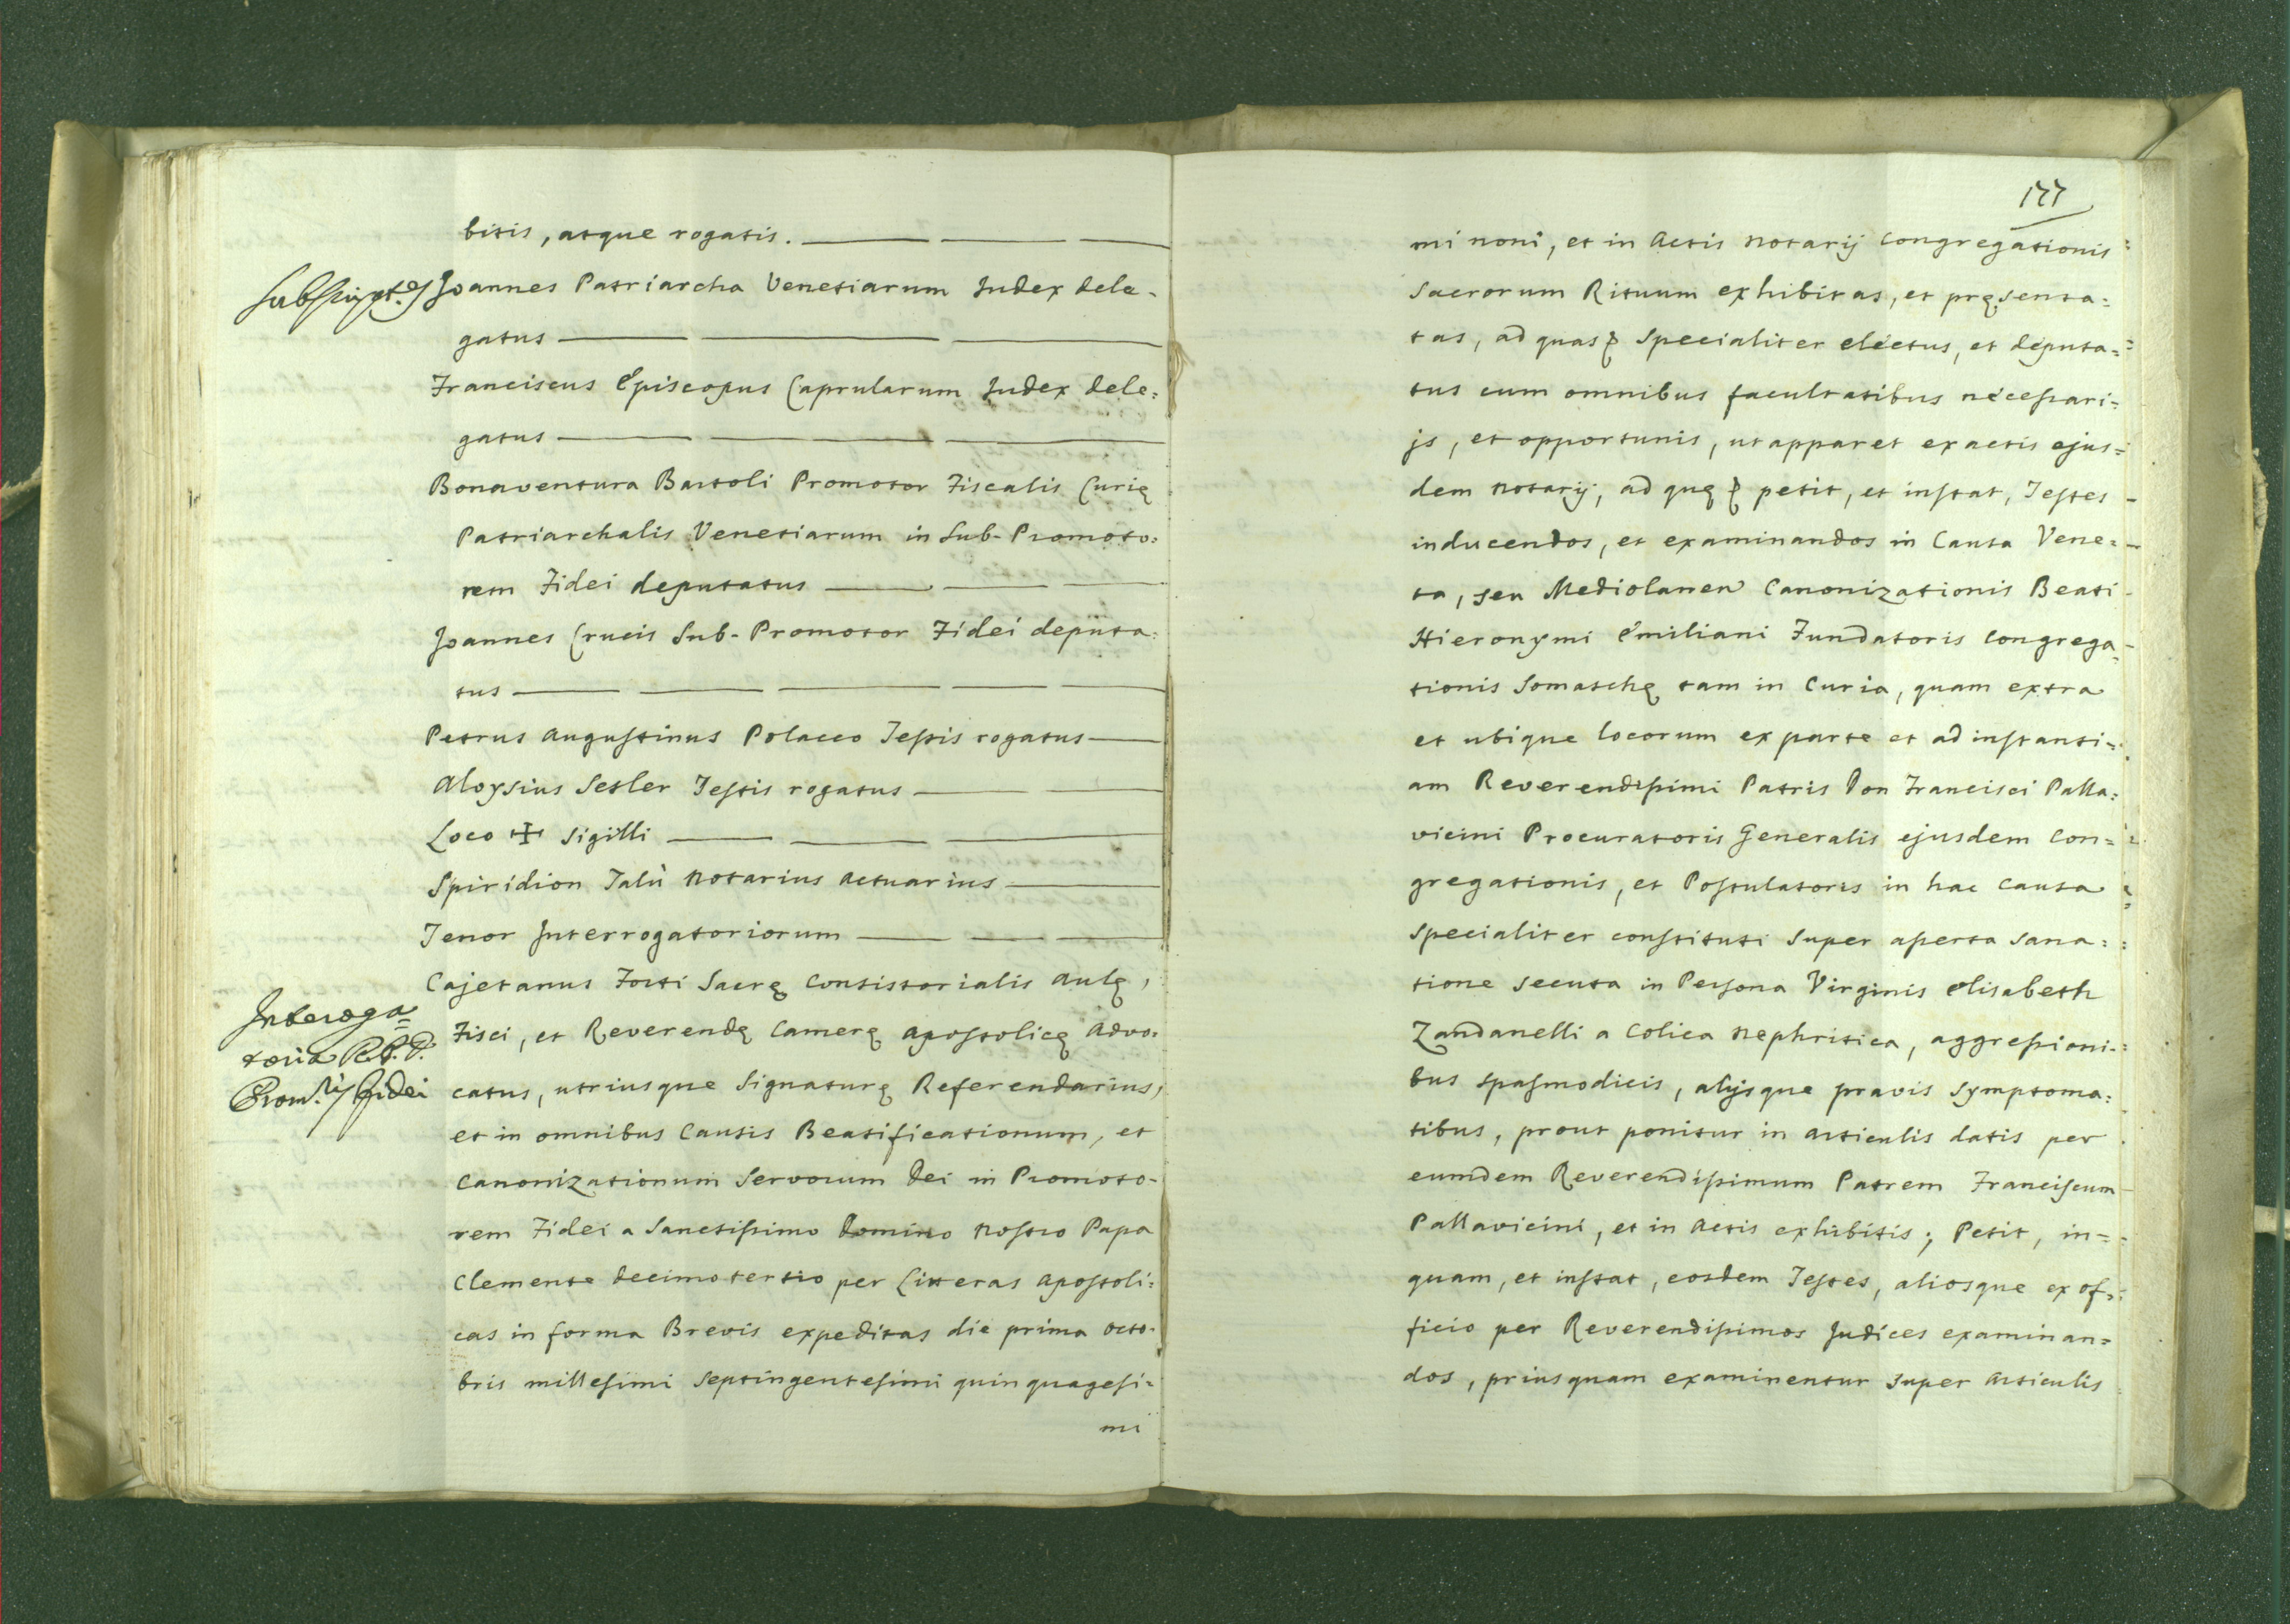 bitis, atque rogatis.
Subscript.es
Joannes Patriarcha Venetiarum Judex dele-
gatus
Franciscus Episcopus Caprularum Judex dele=
gatus
Bonaventura Bartoli Promotor Fiscalis Curię
Patriarchalis Venetiarum in Sub-Promoto=
rem Fidei deputatus
Joannes Crucis Sub-Promotor Fidei deputa=
tus
Petrus Augustinus Polacco Testis rogatus
Aloysius Setler Testis rogatus
Loco ✠ Sigilli
Spiridion Talù Notarius Actuarius
Tenor Interrogatoriorum
Interoga=
toria R.P.D.
Prom.ris Fidei
Cajetanus Forti Sacrę Consistorialis Aulę,
Fisci, et Reverendę Camerę Apostolicę Advo=
catus, utriusque Signaturę Referendarius,
et in omnibus Causis Beatificationum, et
Canonizationum Servorum Dei in Promoto-
rem Fidei a Sanctissimo Domino Nostro Papa
Clemente decimotertio per Litteras Apostoli=
cas in forma Brevis expeditas die prima Octo-
bris millesimi septingentesimi quinquagesi-
mi
177
mi noni, et in Actis Notarij Congregationis
Sacrorum Rituum exhibitas, et pręsenta=
tas, ad quas specialiter electus, et deputa=
tus cum omnibus facultatibus necessari=
js, et opportunis, ut apparet ex actis ejus=
dem Notarij, ad quę petit, et instat, Testes
inducendos, et examinandos in Causa Vene=
ta, seu Mediolanen Canonizationis Beati
Hieronymi Emiliani Fundatoris Congrega=
tionis Somaschę tam in Curia, quam extra
et ubique locorum ex parte et ad instanti=
am Reverendissimi Patris Don Francisci Palla=
vicini Procuratoris Generalis ejusdem Con=
gregationis, et Postulatoris in hac Causa
specialiter constituti super asserta sana=
tione secuta in Persona Virginis Elisabeth
Zandanelli a Colica Nephritica, aggressioni=
bus spasmodicis, alijsque pravis symptoma=
tibus, prout ponitur in articulis datis per
eumdem Reverendissimum Patrem Franciscum
Pallavicini, et in Actis exhibitis; Petit, in=
quam, et instat, eosdem Testes, aliosque ex of=
ficio per Reverendissimos Judices examinan=
dos, priusquam examinentur super Articulis